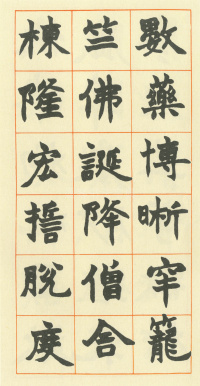 數藥博晰罕籠
竺佛誕降僧舍
棟隆宏誓脫度